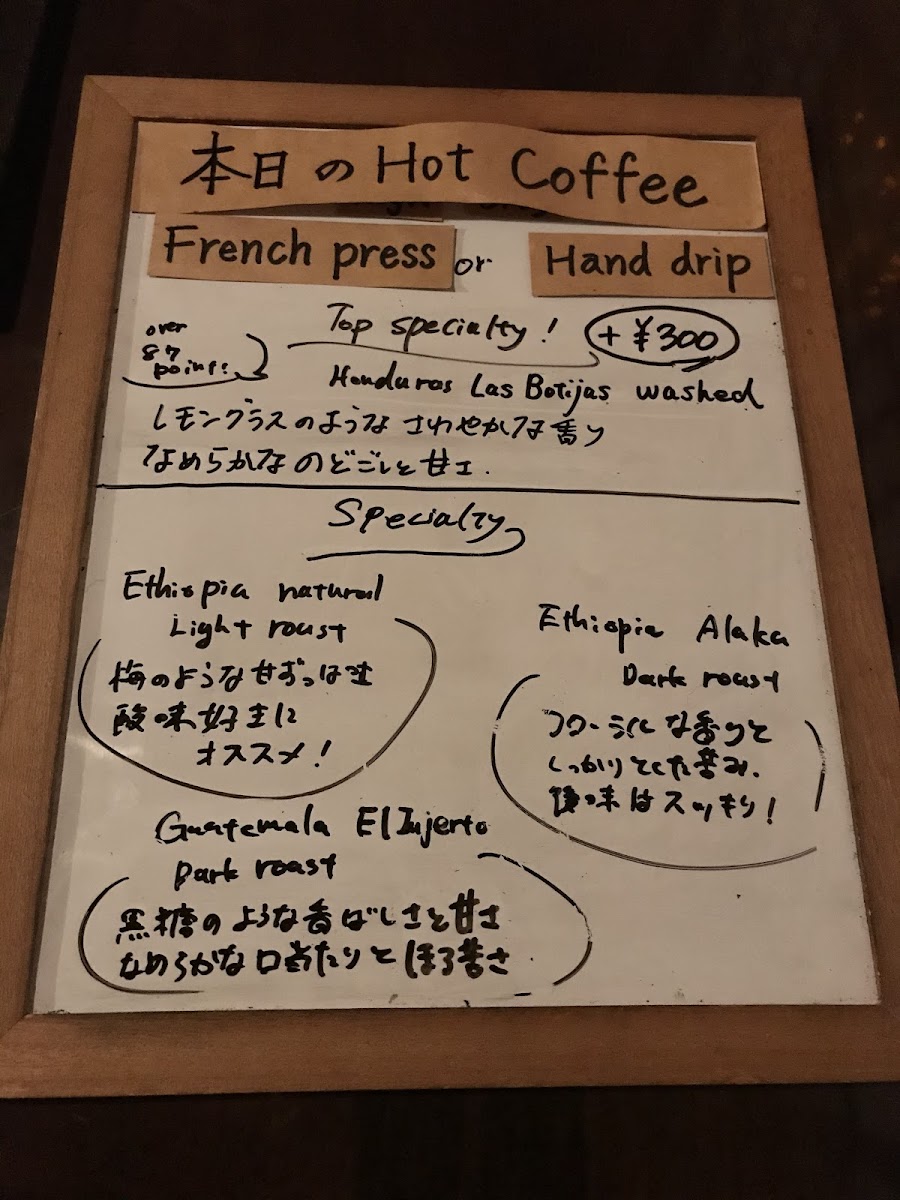 本日の Hot Coffee
French press or Hand drip
Top specialty! +¥300
over
87
points!
Honduras Las Botijas washed
レモングラスのような さわやかな香り
なめらかなのどごしと甘さ.
Specialty
Ethiopia natural
Light roast
梅のような甘ずっぱさ
酸味好きに
オススメ!
Ethiopia Alaka
Dark roast
フローラルな香りと
しっかりとした苦み.
後味はスッキリ!
Guatemala El Injerto
Dark roast
黒糖のような香ばしさと甘さ
なめらかな口当たりとほろ苦さ